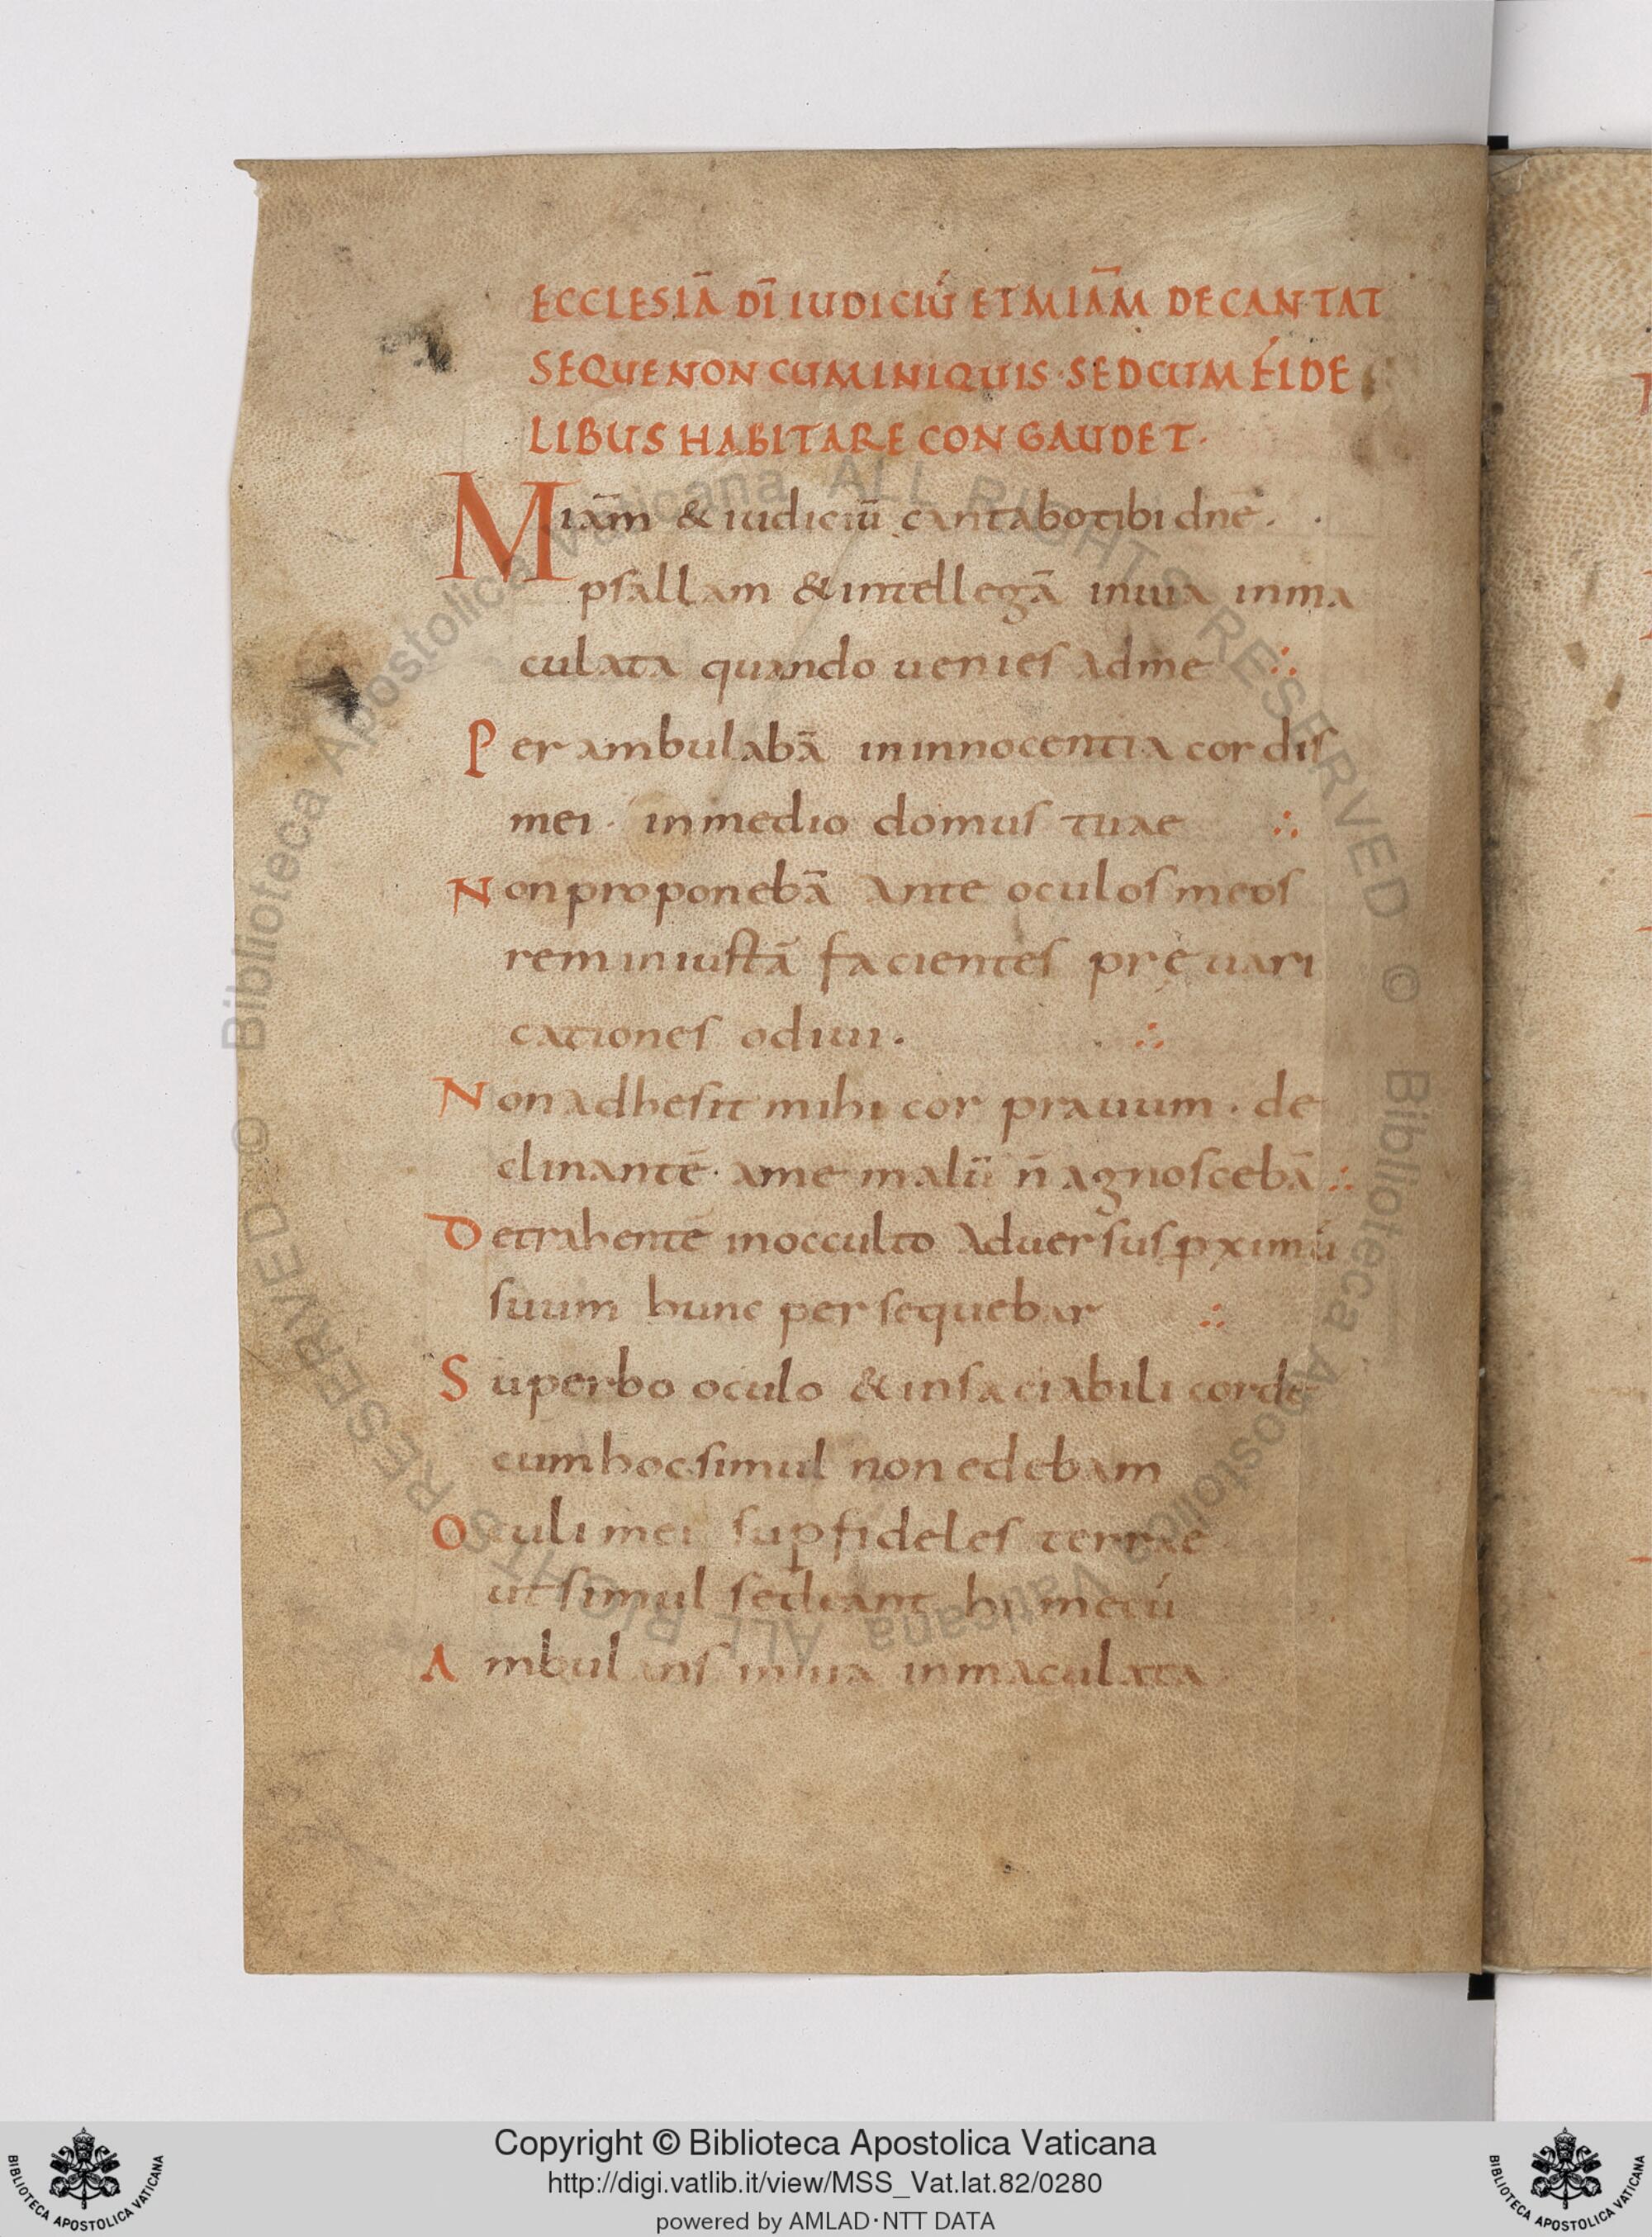 ECCLESIĀ DĪ IUDICIŪ ET MIĀM DECANTAT
SEQUE NON CUM INIQUIS · SED CUM FIDE
LIBUS HABITARE CONGAUDET ·
Miām & iudiciū cantabo tibi dnē .
psallam & intellegā in uia inma
culata quando uenies ad me ∴
Perambulabā in innocentia cordis
mei · in medio domus tuae ∴
Non proponebā ante oculos meos
rem iniustā facientes pręuari
cationes odiui . ∴
Non adhesit mihi cor prauum . de
clinantē · a me malū n̄ agnoscebā ∴
Detrahentē in occulto aduersus pximū
suum hunc persequebar ∴
Superbo oculo & insaciabili corde
cum hoc simul non edebam
Oculi mei sup fideles terrae
ut simul sedeant hi mecū
Ambulans in uia inmaculata
© Biblioteca Apostolica Vaticana ALL RIGHTS RESERVED © Biblioteca Apostolica Vaticana ALL RIGHTS RESERVED
Copyright © Biblioteca Apostolica Vaticana
http://digi.vatlib.it/view/MSS_Vat.lat.82/0280
powered by AMLAD·NTT DATA
BIBLIOTECA APOSTOLICA VATICANA
BIBLIOTECA APOSTOLICA VATICANA